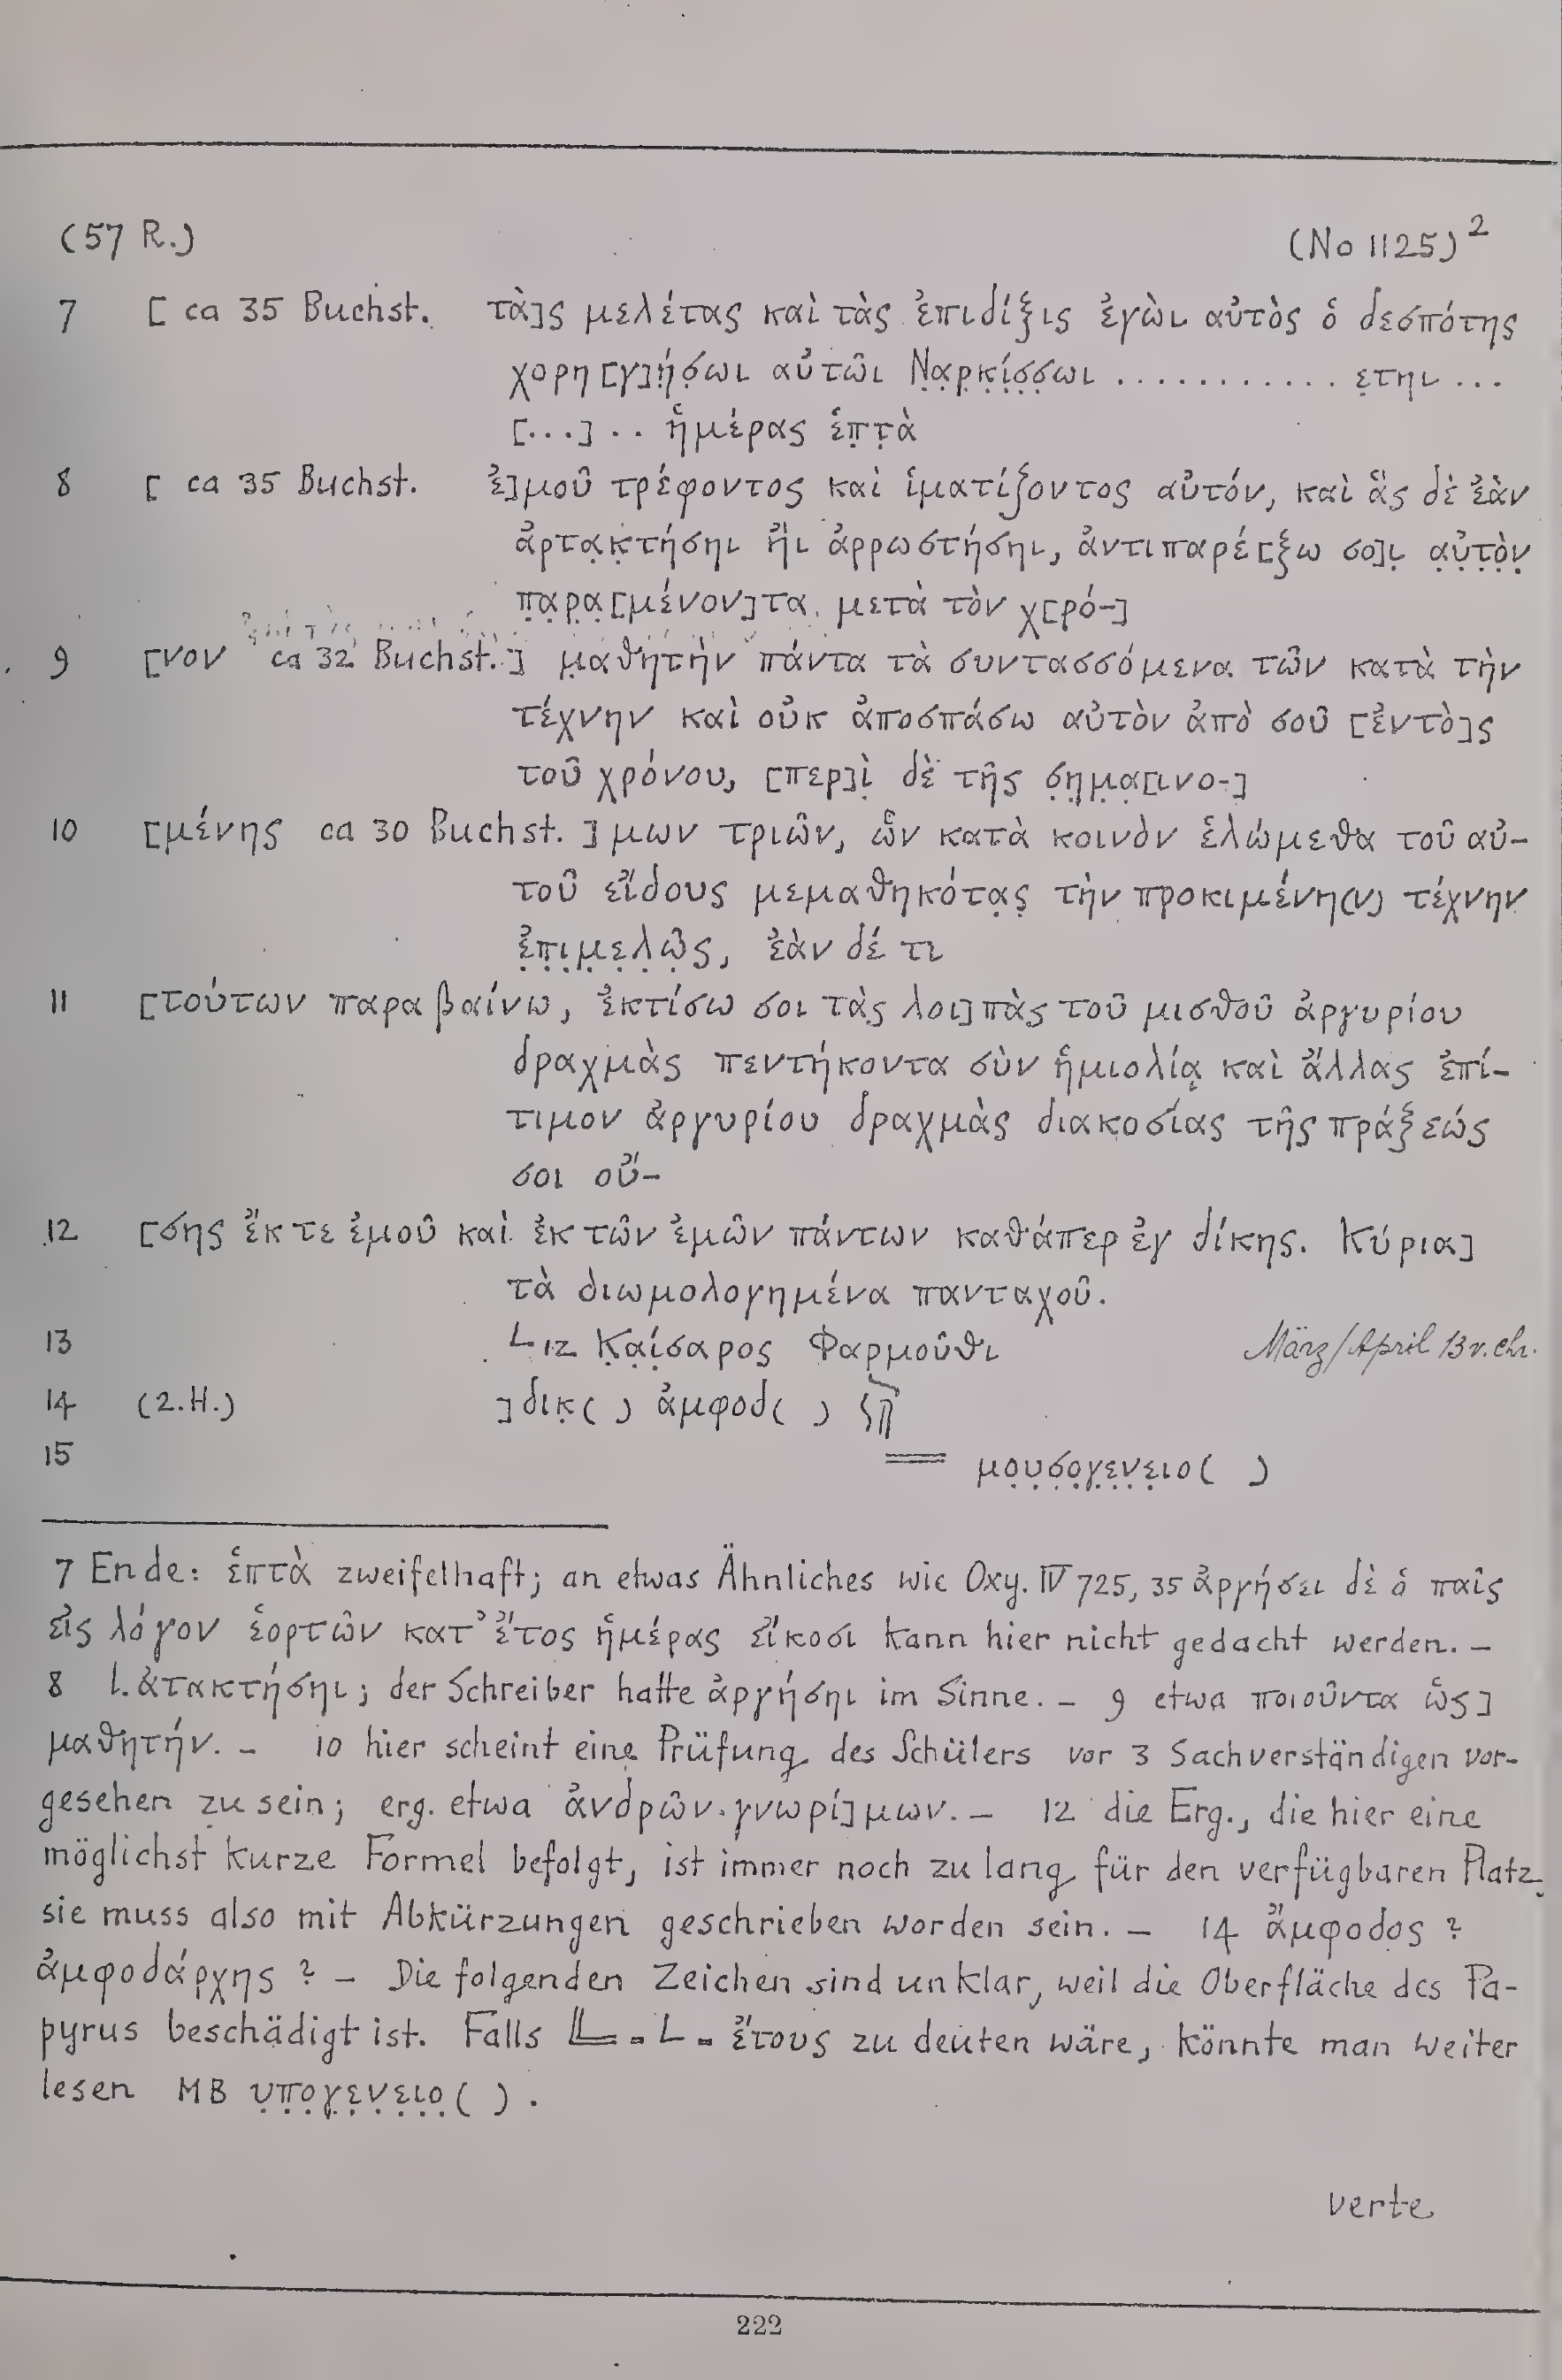 (57 R.) (No 1125)²
7 [ ca 35 Buchst. τὰ]ς μελέτας καὶ τὰς ἐπιδίξις ἐγὼι αὐτὸς ὁ δεσπότης
χορη[γ]ή̣σ̣ωι αὐτῶι Ν̣α̣ρ̣κ̣ί̣σ̣σ̣ωι ........... ε̣τηι ...
[...] .. ἡμέρας ἑπ̣τ̣ὰ
8 [ ca 35 Buchst. ἐ]μοῦ τρέφοντος καὶ ἱματίζοντος αὐτόν, καὶ ἃς δὲ ἐὰν
ἀρτα̣κ̣τήσηι ἢι ἀρρωστήσηι, ἀντιπαρέ[ξω σο]ι̣ α̣ὐ̣τ̣ὸ̣ν̣
π̣α̣ρ̣α̣[μένον]τα μετὰ τὸν χ[ρό-]
9 [νον ca 32 Buchst.] μ̣αθητὴν πάντα τὰ συντασσόμενα τῶν κατὰ τὴν
τέχνην καὶ οὐκ ἀποσπάσω αὐτὸν ἀπὸ σοῦ [ἐντὸ]ς
τοῦ χρόνου, [περ]ὶ̣ δὲ τῆς σ̣η̣μ̣α̣[ινο-]
10 [μένης ca 30 Buchst. ]μων τριῶν, ὧν κατὰ κοινὸν ἑλώμεθα τοῦ αὐ-
τοῦ εἴδους μεμαθηκότα̣ς̣ τὴν προκιμένη(ν) τέχνην
ἐ̣π̣ι̣μ̣ε̣λ̣ῶ̣ς̣, ἐὰν δέ τι
11 [τούτων παραβαίνω, ἐκτίσω σοι τὰς λοι]πὰς τοῦ μισθοῦ ἀργυρίου
δραχμὰς πεντήκοντα σὺν ἡμιολίᾳ καὶ ἄλλας ἐπί-
τιμον ἀργυρίου δραχμὰς διακοσίας τῆς πράξεώς
σοι οὔ-
12 [σης ἔκ τε ἐμοῦ καὶ ἐκ τῶν ἐμῶν πάντων καθάπερ ἐγ δίκης. Κύρια]
τὰ διωμολογημένα πανταχοῦ.
13 L ιζ Κ̣α̣ί̣σαρος Φαρμοῦθι März/April 13 v. Chr.
14 (2.H.) ]δικ̣( ) ἀμφοδ( )
15 μ̣ο̣υ̣σ̣ο̣γ̣ε̣ν̣ε̣ιο( )
7 Ende: ἑπτὰ zweifelhaft; an etwas Ähnliches wie Oxy. IV 725, 35 ἀργήσει δὲ ὁ παῖς
εἰς λόγον ἑορτῶν κατ' ἔτος ἡμέρας εἴκοσι kann hier nicht gedacht werden. –
8 l. ἀτακτήσηι; der Schreiber hatte ἀργήσηι im Sinne. – 9 etwa ποιοῦντα ὡς]
μαθητήν. – 10 hier scheint eine Prüfung des Schülers vor 3 Sachverständigen vor-
gesehen zu sein; erg. etwa ἀνδρῶν γνωρί]μων. – 12 die Erg., die hier eine
möglichst kurze Formel befolgt, ist immer noch zu lang für den verfügbaren Platz,
sie muss also mit Abkürzungen geschrieben worden sein. – 14 ἄμφοδος ?
ἀμφοδάρχης ? – Die folgenden Zeichen sind unklar, weil die Oberfläche des Pa-
pyrus beschädigt ist. Falls = L = ἔτους zu deuten wäre, könnte man weiter
lesen ΜΒ υ̣π̣ο̣γ̣ε̣ν̣ε̣ι̣ο̣( ).
verte
222